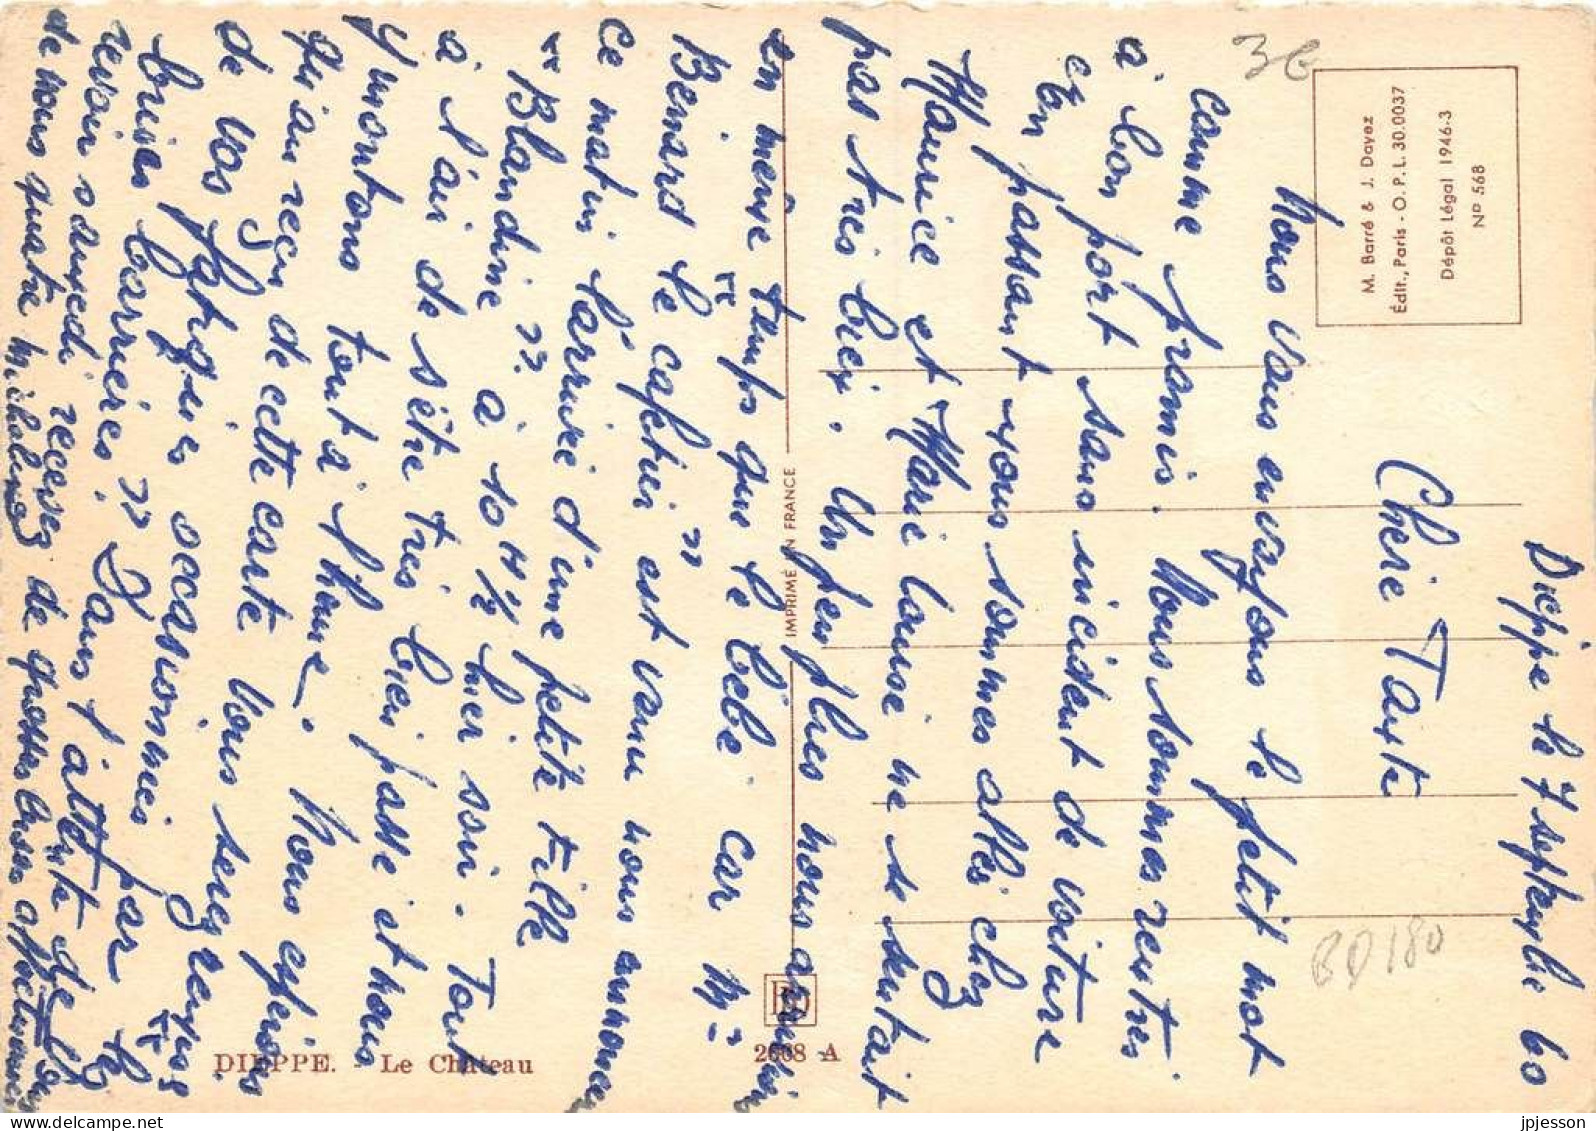 Dieppe le 7 septembre 60
Chère Tante
Nous vous envoyons le petit mot
comme promis. Nous sommes rentrés
à bon port sans incident de voiture
et en passant nous sommes allés chez
Maurice et Marie Louise ne se sentait
pas très bien. Un peu plus nous
en même temps que le bébé car Mr
Bénard "le cafetier" est venu nous annoncer
ce matin l'arrivée d'une petite fille
"Blandine". à 10 H ½ hier soir. Tout
a l'air de s'être très bien passé et nous
y montons tout à l'heure. Nous espérons
qu'au reçu de cette carte vous serez remise
de vos fatigues occasionnées par "les
buires barrières" Dans l'attente de
revoir samedi recevez de
de nous quatre grosses bises affectueuses
M. Barré & J. Dayez
Édit., Paris - O. P. L. 30.0037
Dépôt Légal 1946-3
Nº 568
IMPRIMÉ EN FRANCE
BD
2608 A
DIEPPE. - Le Château
36
BD180
jpjesson